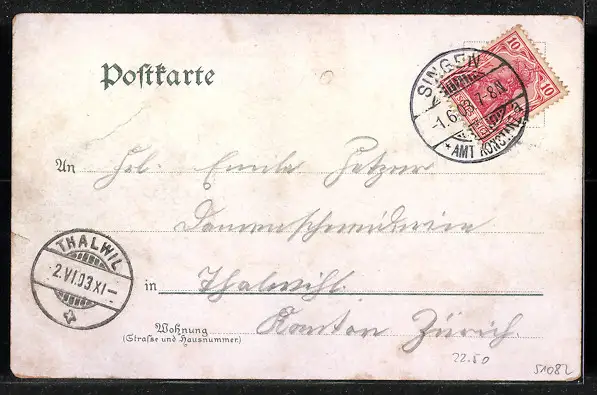 Postkarte
10
10
SINGEN
-1.6.03 7-8N
* AMT KONSTANZ
An Frl. Emile Hetzer
Damenschneiderin
in Thalwihl
Kanton Zürich
Wohnung
(Straße und Hausnummer)
THALWIL
2.VI.03.XI-
22.50
51082